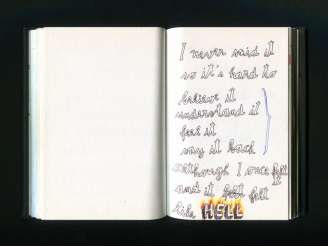 I never said it
so it's hard to
believe it
understand it
feel it
say it back
although I once felt it
and it felt felt
like HELL